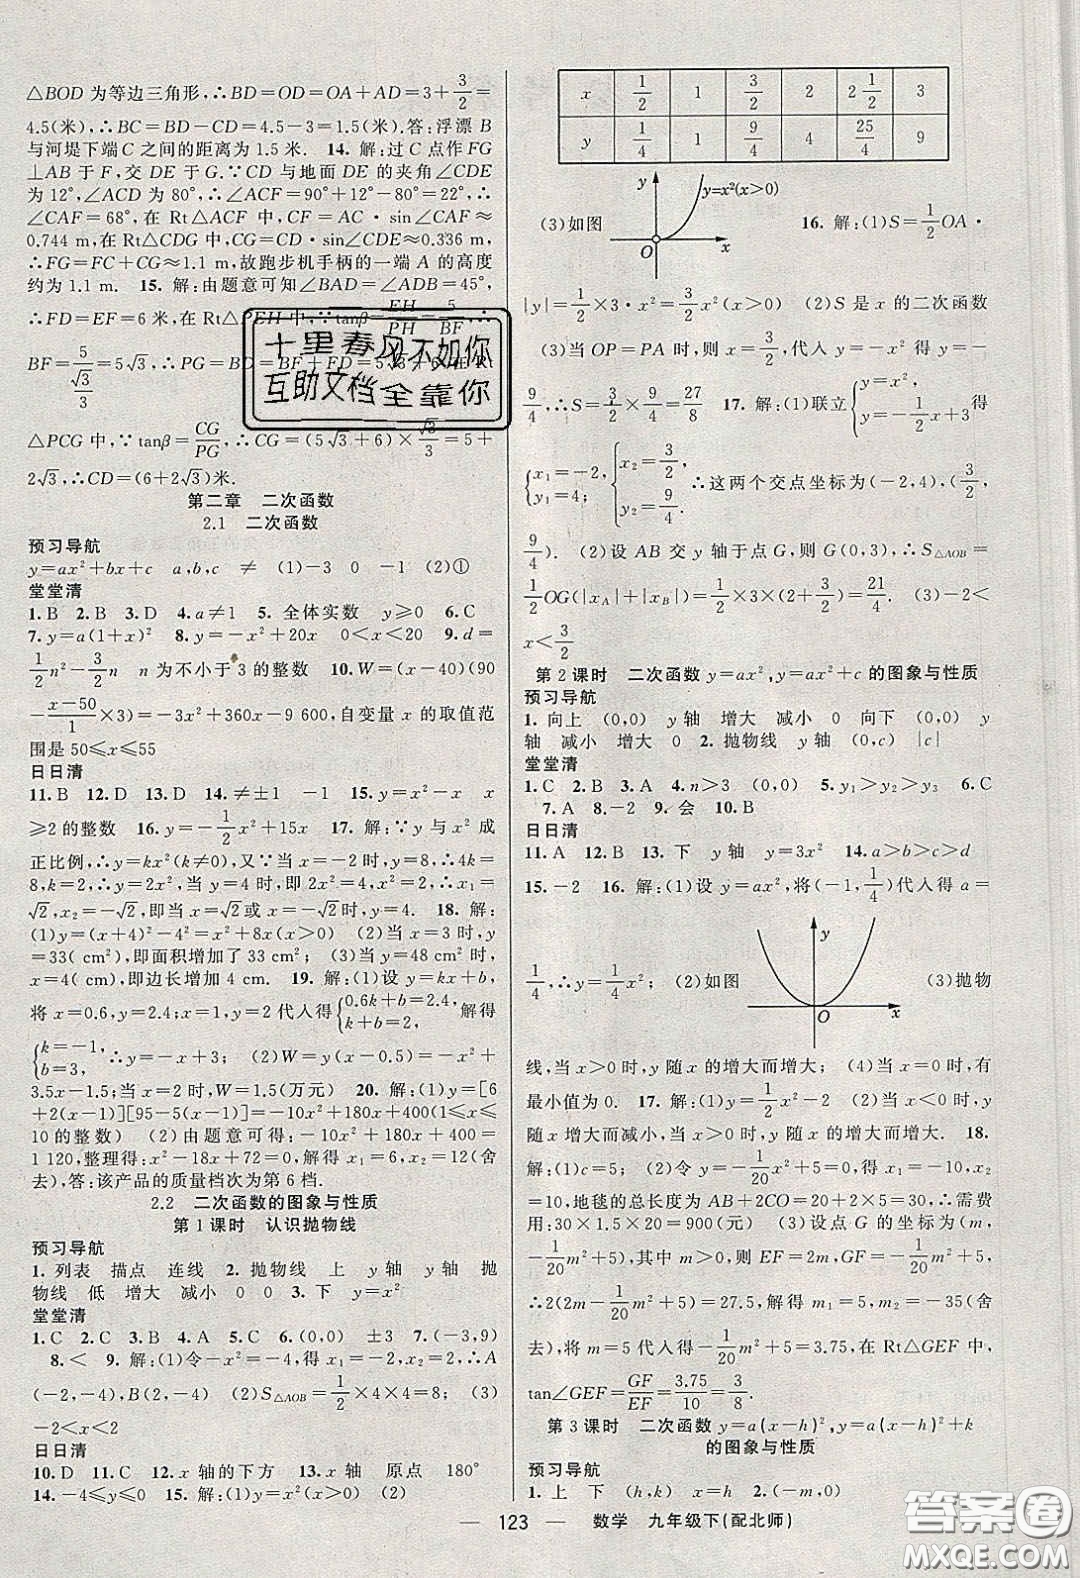 △BOD为等边三角形,∴BD=OD=OA+AD=3+3/2=
4.5(米),∴BC=BD-CD=4.5-3=1.5(米).答:浮漂B
与河堤下端C之间的距离为1.5米. 14. 解:过C点作FG
⊥AB于F,交DE于G.∵CD与地面DE的夹角∠CDE
为12°,∠ACD为80°,∴∠ACF=90°+12°-80°=22°,∴
∠CAF=68°,在Rt△ACF中,CF=AC·sin∠CAF≈
0.744 m,在Rt△CDG中,CG=CD·sin∠CDE≈0.336 m,
∴FG=FC+CG≈1.1 m,故跑步机手柄的一端A的高度
约为1.1 m. 15. 解:由题意可知∠BAD=∠ADB=45°,
∴FD=EF=6米,在Rt△PEH中,∵tanβ=EH/PH=5/BF,∴
BF=5/(√3/3)=5√3,∴PG=BD=BF+FD=5√3+6,在Rt
△PCG中,∵tanβ=CG/PG,∴CG=(5√3+6)×√3/3=5+
2√3,∴CD=(6+2√3)米.
十里春风不如你
互助文档全靠你
第二章 二次函数
2.1 二次函数
预习导航
y=ax²+bx+c a,b,c ≠ (1)-3 0 -1 (2)①
堂堂清
1.B 2.B 3.D 4.a≠1 5. 全体实数 y≥0 6.C
7.y=a(1+x)² 8.y=-x²+20x 0<x<20 9.d=
1/2n²-3/2n n为不小于3的整数 10.W=(x-40)(90
-(x-50)/1×3)=-3x²+360x-9 600,自变量x的取值范
围是50≤x≤55
日日清
11.B 12.D 13.D 14.≠±1 -1 15.y=x²-x x
≥2的整数 16.y=-1/2x²+15x 17. 解:∵y与x²成
正比例,∴y=kx²(k≠0),又∵当x=-2时,y=8,∴4k=
8,k=2,∴y=2x²,当y=4时,即2x²=4,x²=2,∴x₁=
√2,x₂=-√2,即当x=√2或x=-√2时,y=4. 18. 解:
(1)y=(x+4)²-4²=x²+8x(x>0) (2)当x=3时,y
=33(cm²),即面积增加了33 cm² (3)当y=48时,
x=4(cm),即边长增加4 cm. 19. 解:(1)设y=kx+b,
将x=0.6,y=2.4,x=1,y=2代入得{0.6k+b=2.4, k+b=2, 解得
{k=-1, b=3, ∴y=-x+3; (2)W=(-x+3)(x-0.5)=-x²+
3.5x-1.5;当x=2时,W=1.5(万元) 20. 解:(1)y=[6
+2(x-1)][95-5(x-1)]=-10x²+180x+400(1≤x≤
10的整数) (2)由题意可得:-10x²+180x+400=
1 120,整理得:x²-18x+72=0,解得x₁=6,x₂=12(舍
去),答:该产品的质量档次为第6档.
2.2 二次函数的图象与性质
第1课时 认识抛物线
预习导航
1. 列表 描点 连线 2. 抛物线 上 y轴 y轴 抛
物线 低 增大 减小 0 0 3. 下 y=x²
堂堂清
1.C 2.C 3.B 4.A 5.C 6.(0,0) ±3 7.(-3,9)
8.< 9. 解:(1)令-x²=-4,得x₁=-2,x₂=2,∴A
(-2,-4),B(2,-4) (2)S△AOB=1/2×4×4=8; (3)
-2<x<2
日日清
10.D 11.C 12.x轴的下方 13.x轴 原点 180°
14.-4≤y≤0 15. 解:(1)y=x²(x>0) (2)
x 1/2 1 3/2 2 2 1/2 3
y 1/4 1 9/4 4 25/4 9
(3)如图 y y=x²(x>0) O x 16. 解:(1)S=1/2OA·
|y|=1/2×3·x²=3/2x²(x>0) (2)S是x的二次函数
(3)当OP=PA时,则x=3/2,把x=3/2代入y=x²得y=
9/4,∴S=3/2×9/4=27/8 17. 解:(1)联立{y=x², y=-1/2x+3得
{x₁=-2, y₁=4; {x₂=3/2, y₂=9/4. ∴这两个交点坐标为(-2,4),(3/2,
9/4). (2)设AB交y轴于点G,则G(0,3),∴S△AOB=
1/2OG(|xA|+|xB|)=1/2×3×(2+3/2)=21/4. (3)-2<
x<3/2
第2课时 二次函数y=ax²,y=ax²+c的图象与性质
预习导航
1. 向上 (0,0) y轴 增大 减小 0 向下 (0,0) y
轴 减小 增大 0 2. 抛物线 y轴 (0,c) |c|
堂堂清
1.C 2.B 3.A 4.n>3 5.y₁>y₂>y₃ 6.C
7.A 8.-2 9. 会 10.B
日日清
11.A 12.B 13. 下 y轴 y=3x² 14.a>b>c>d
15.-2 16. 解:(1)设y=ax²,将(-1,1/4)代入得a=
1/4,∴y=1/4x²; (2)如图 y O x (3)抛物
线,当x>0时,y随x的增大而增大; (4)当x=0时,有
最小值为0. 17. 解:(1)y=1/2x²-2 (2)当x<0时,y
随x增大而减小,当x>0时,y随x的增大而增大. 18.
解:(1)c=5; (2)令y=0,即-1/20x²+5=0,解得x₁=10,
x₂=-10,地毯的总长度为AB+2CO=20+2×5=30,需费
用:30×1.5×20=900(元) (3)设点G的坐标为(m,
-1/20m²+5),其中m>0,则EF=2m,GF=-1/20m²+5,
∴2(2m-1/20m²+5)=27.5,解得m₁=5,m₂=35(舍
去),将m=5代入得-1/20m²+5=3.75,在Rt△GEF中,
tan∠GEF=GF/EF=3.75/10=3/8.
第3课时 二次函数y=a(x-h)²,y=a(x-h)²+k
的图象与性质
预习导航
1. 上 下 (h,k) x=h 2.(-m,0)
— 123 — 数学 九年级下(配北师)
答案圈
MXQE.COM